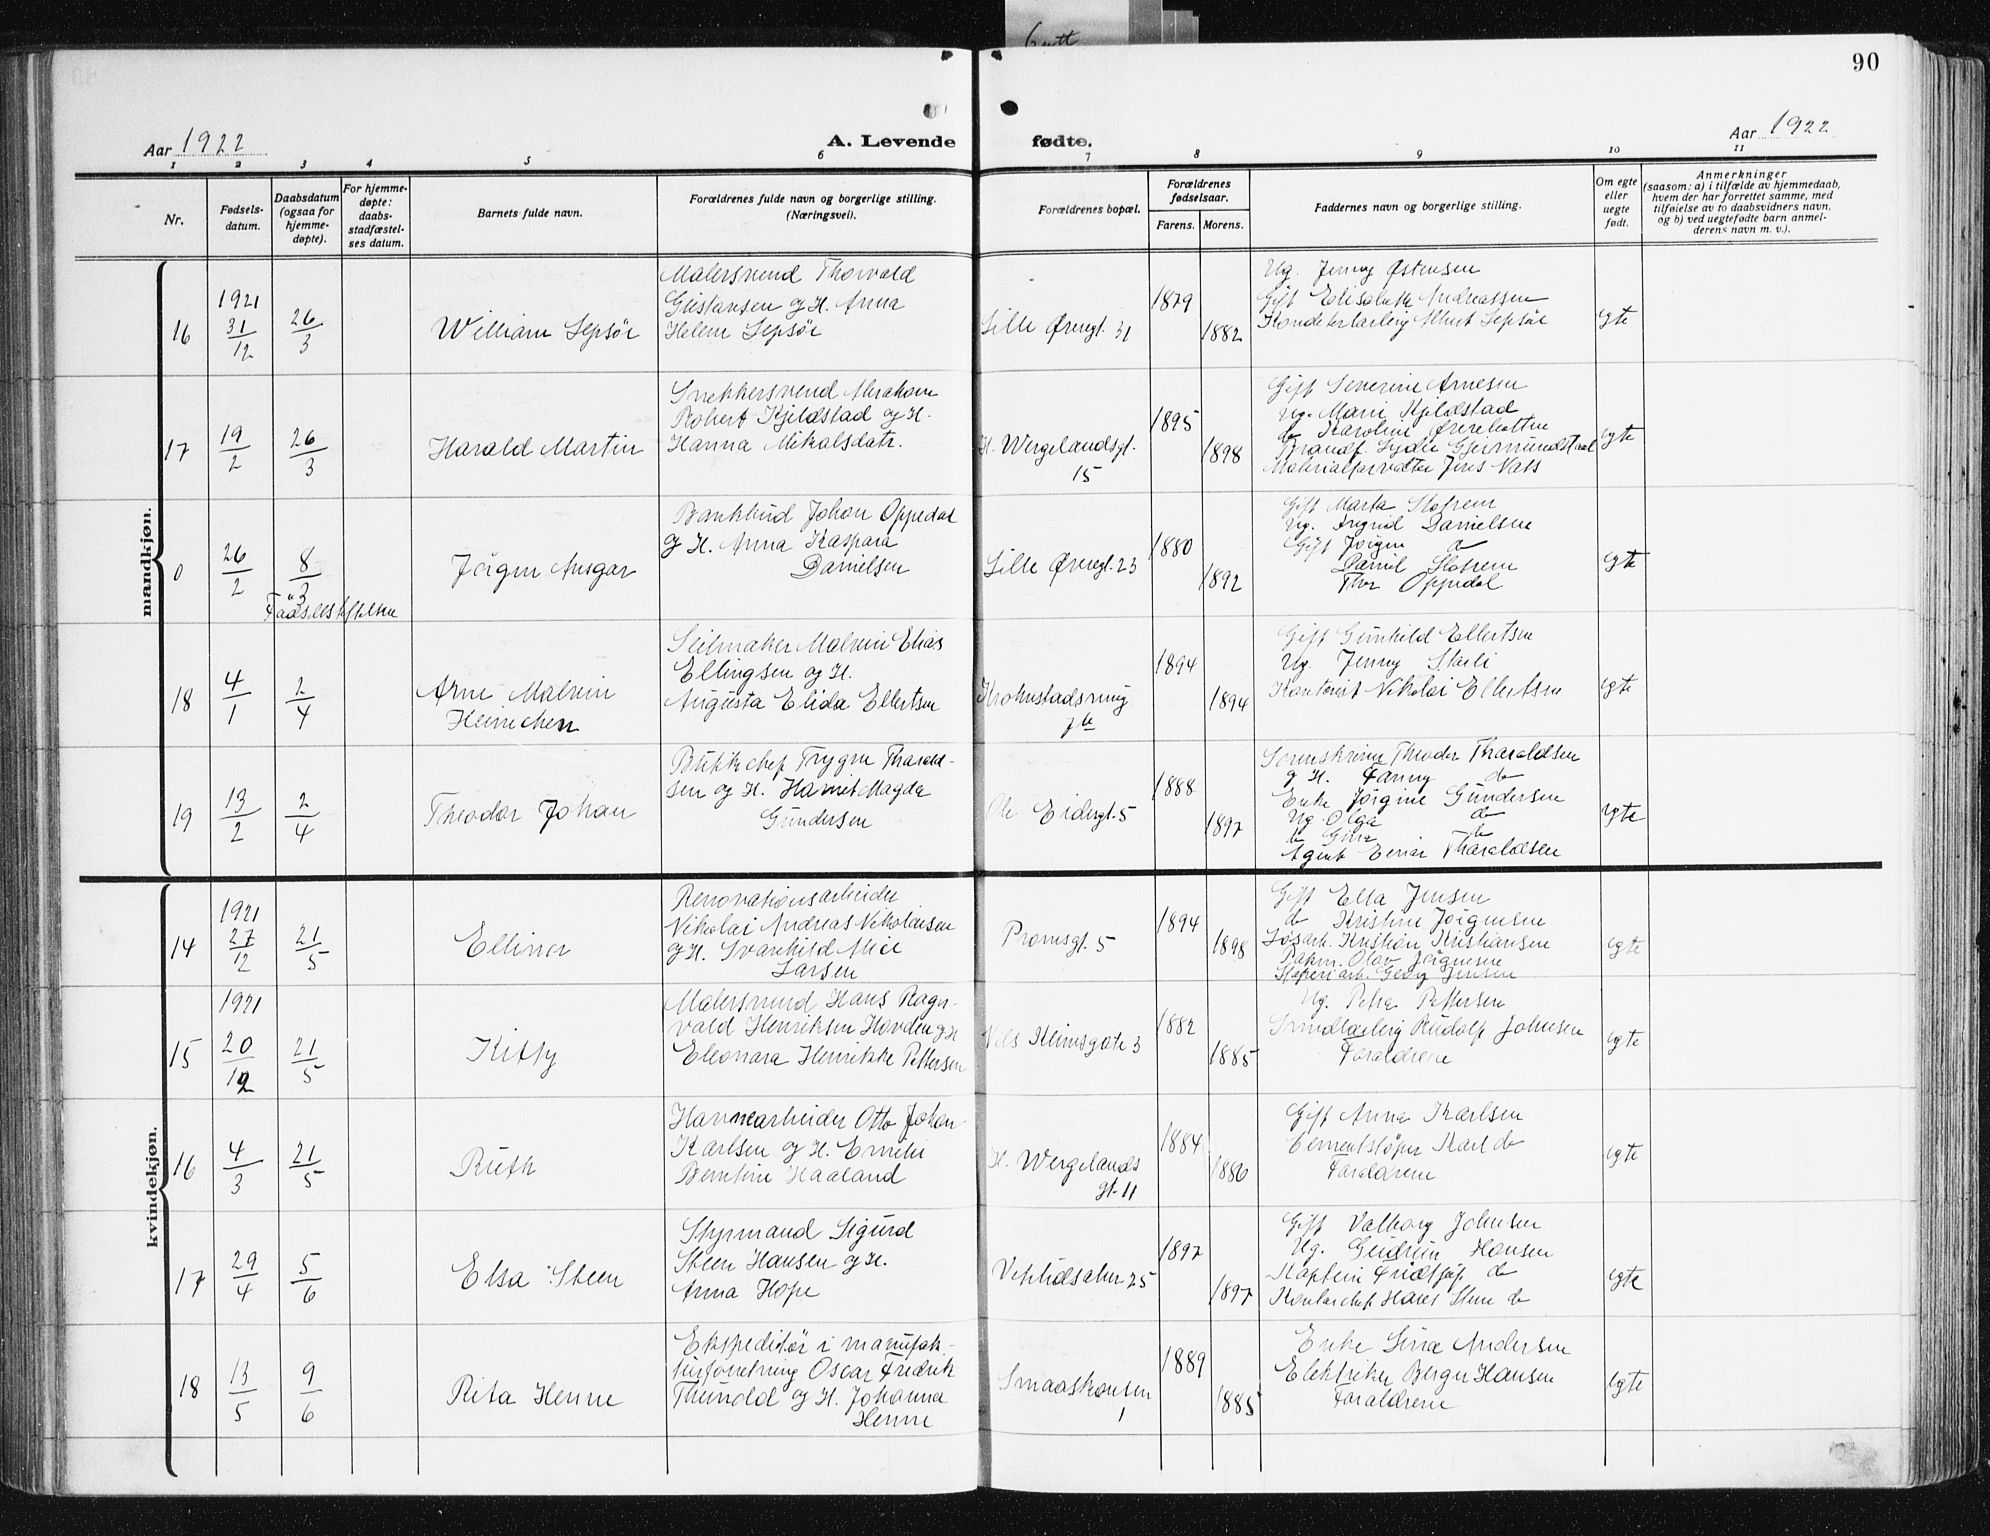 90
Aar 1922
A. Levende fødte.
Aar 1922
1 2 3 4 5 6 7 8 9 10 11
Nr.
Fødsels-
datum.
Daabsdatum
(ogsaa for
hjemme-
døpte).
For hjemme-
døpte:
daabs-
stadfæstel-
ses datum.
Barnets fulde navn.
Forældrenes fulde navn og borgerlige stilling.
(Næringsvei).
Forældrenes bopæl.
Forældrenes
fødselsaar.
Farens. Morens.
Faddernes navn og borgerlige stilling.
Om egte
eller
uegte
født.
Anmerkninger
(saasom: a) i tilfælde av hjemmedaab,
hvem der har forrettet samme, med
tilføielse av to daabsvidners navn,
og b) ved uegtefødte barn anmel-
derens navn m. v.).
mandkjøn.
16
1921
31/12
26/3
William Sepsör
Malersvend Thorvald
Gustavsen og H. Anna
Helene Sepsör
Lille Øvregt. 31
1879
1882
Ug. Jenny Østensen
Gift Elisabeth Andreassen
Albert Sepsör
egte
17
19/2
26/3
Harald Martin
Snekkersvend Abraham
Robert Kjeldstad og H.
Hanna Mikalsdatr.
H. Wergelandsgt.
15
1895
1898
Gift Severine Arnesen
Ug. Marie Kjeldstad
do Karoline
Brandf.
Materialforvalter Jens Vabs
egte
0
26/2
8/3
Jörgen Ansgar
Bankbud Johan Oppedal
og H. Anna Kaspara
Danielsen
Lille Øvregt. 23
1880
1892
Gift Marta
Ug. Ingrid Danielsen
Gift Jörgine do
Daniel
Thor Oppedal
egte
18
4/1
2/4
Arne Malvin
Heinichen
Seilmaker Malvin Elias
Ellingsen og H.
Augusta Elida Ellertsen
Krohnstadsring
1894
1894
Gift Gunhild Ellertsen
Ug. Jenny
Kontorist Nikolai Ellertsen
egte
19
13/2
2/4
Theodor Johan
Butikchef Trygve Tharald-
sen og H. Harriet Magda
Gundersen
Ole Eidesgt. 5
1888
1897
Sorenskriver Theodor Tharaldsen
og H. Fanny do
Enke Jörgine Gundersen
Ug. Olga do
do Gina do
Agent Einar Tharaldsen
egte
kvindekjøn.
14
1921
27/12
21/5
Ellinor
Renovationsarbeider
Nikolai Andreas Nikolaisen
og H. Svanhild Alice
Larsen
Promsgt. 5
1894
1898
Gift Ella Jensen
do Kristine Jörgensen
Løsarb. Kristian Kristiansen
Pakm. Olav Jörgensen
Georg Jensen
egte
15
1921
20/12
21/5
Kitty
Malersvend Hans Ragn-
vald Henriksen Hovden og H.
Eleonora Henrikke Pettersen
Nils Klimsgate 3
1882
1885
Ug. Petra Pettersen
Rudolf Johnsen
Forældrene
egte
16
4/3
21/5
Ruth
Havnearbeider Otto Johan
Karlsen og H. Emelie
Berntine Haaland
H. Wergelands
gt. 11
1884
1886
Gift Anna Karlsen
Cementstöper Karl do
Forældrene
egte
17
29/4
5/6
Elsa Steen
Styrmand Sigurd
Steen Hansen og H.
Anna Hope
25
1897
1897
Gift Valborg Johnsen
Ug. Gudrun Hansen
Kaptein Fridtjof do
Kontorchef Hans Steen do
egte
18
13/5
9/6
Rita Henne
Ekspeditör i manufak-
turforretning Oscar Fredrik
Thunold og H. Johanna
Henne
Smaaskansen
1
1889
1885
Enke Lina Andersen
Elektriker Berger Hansen
Forældrene
egte